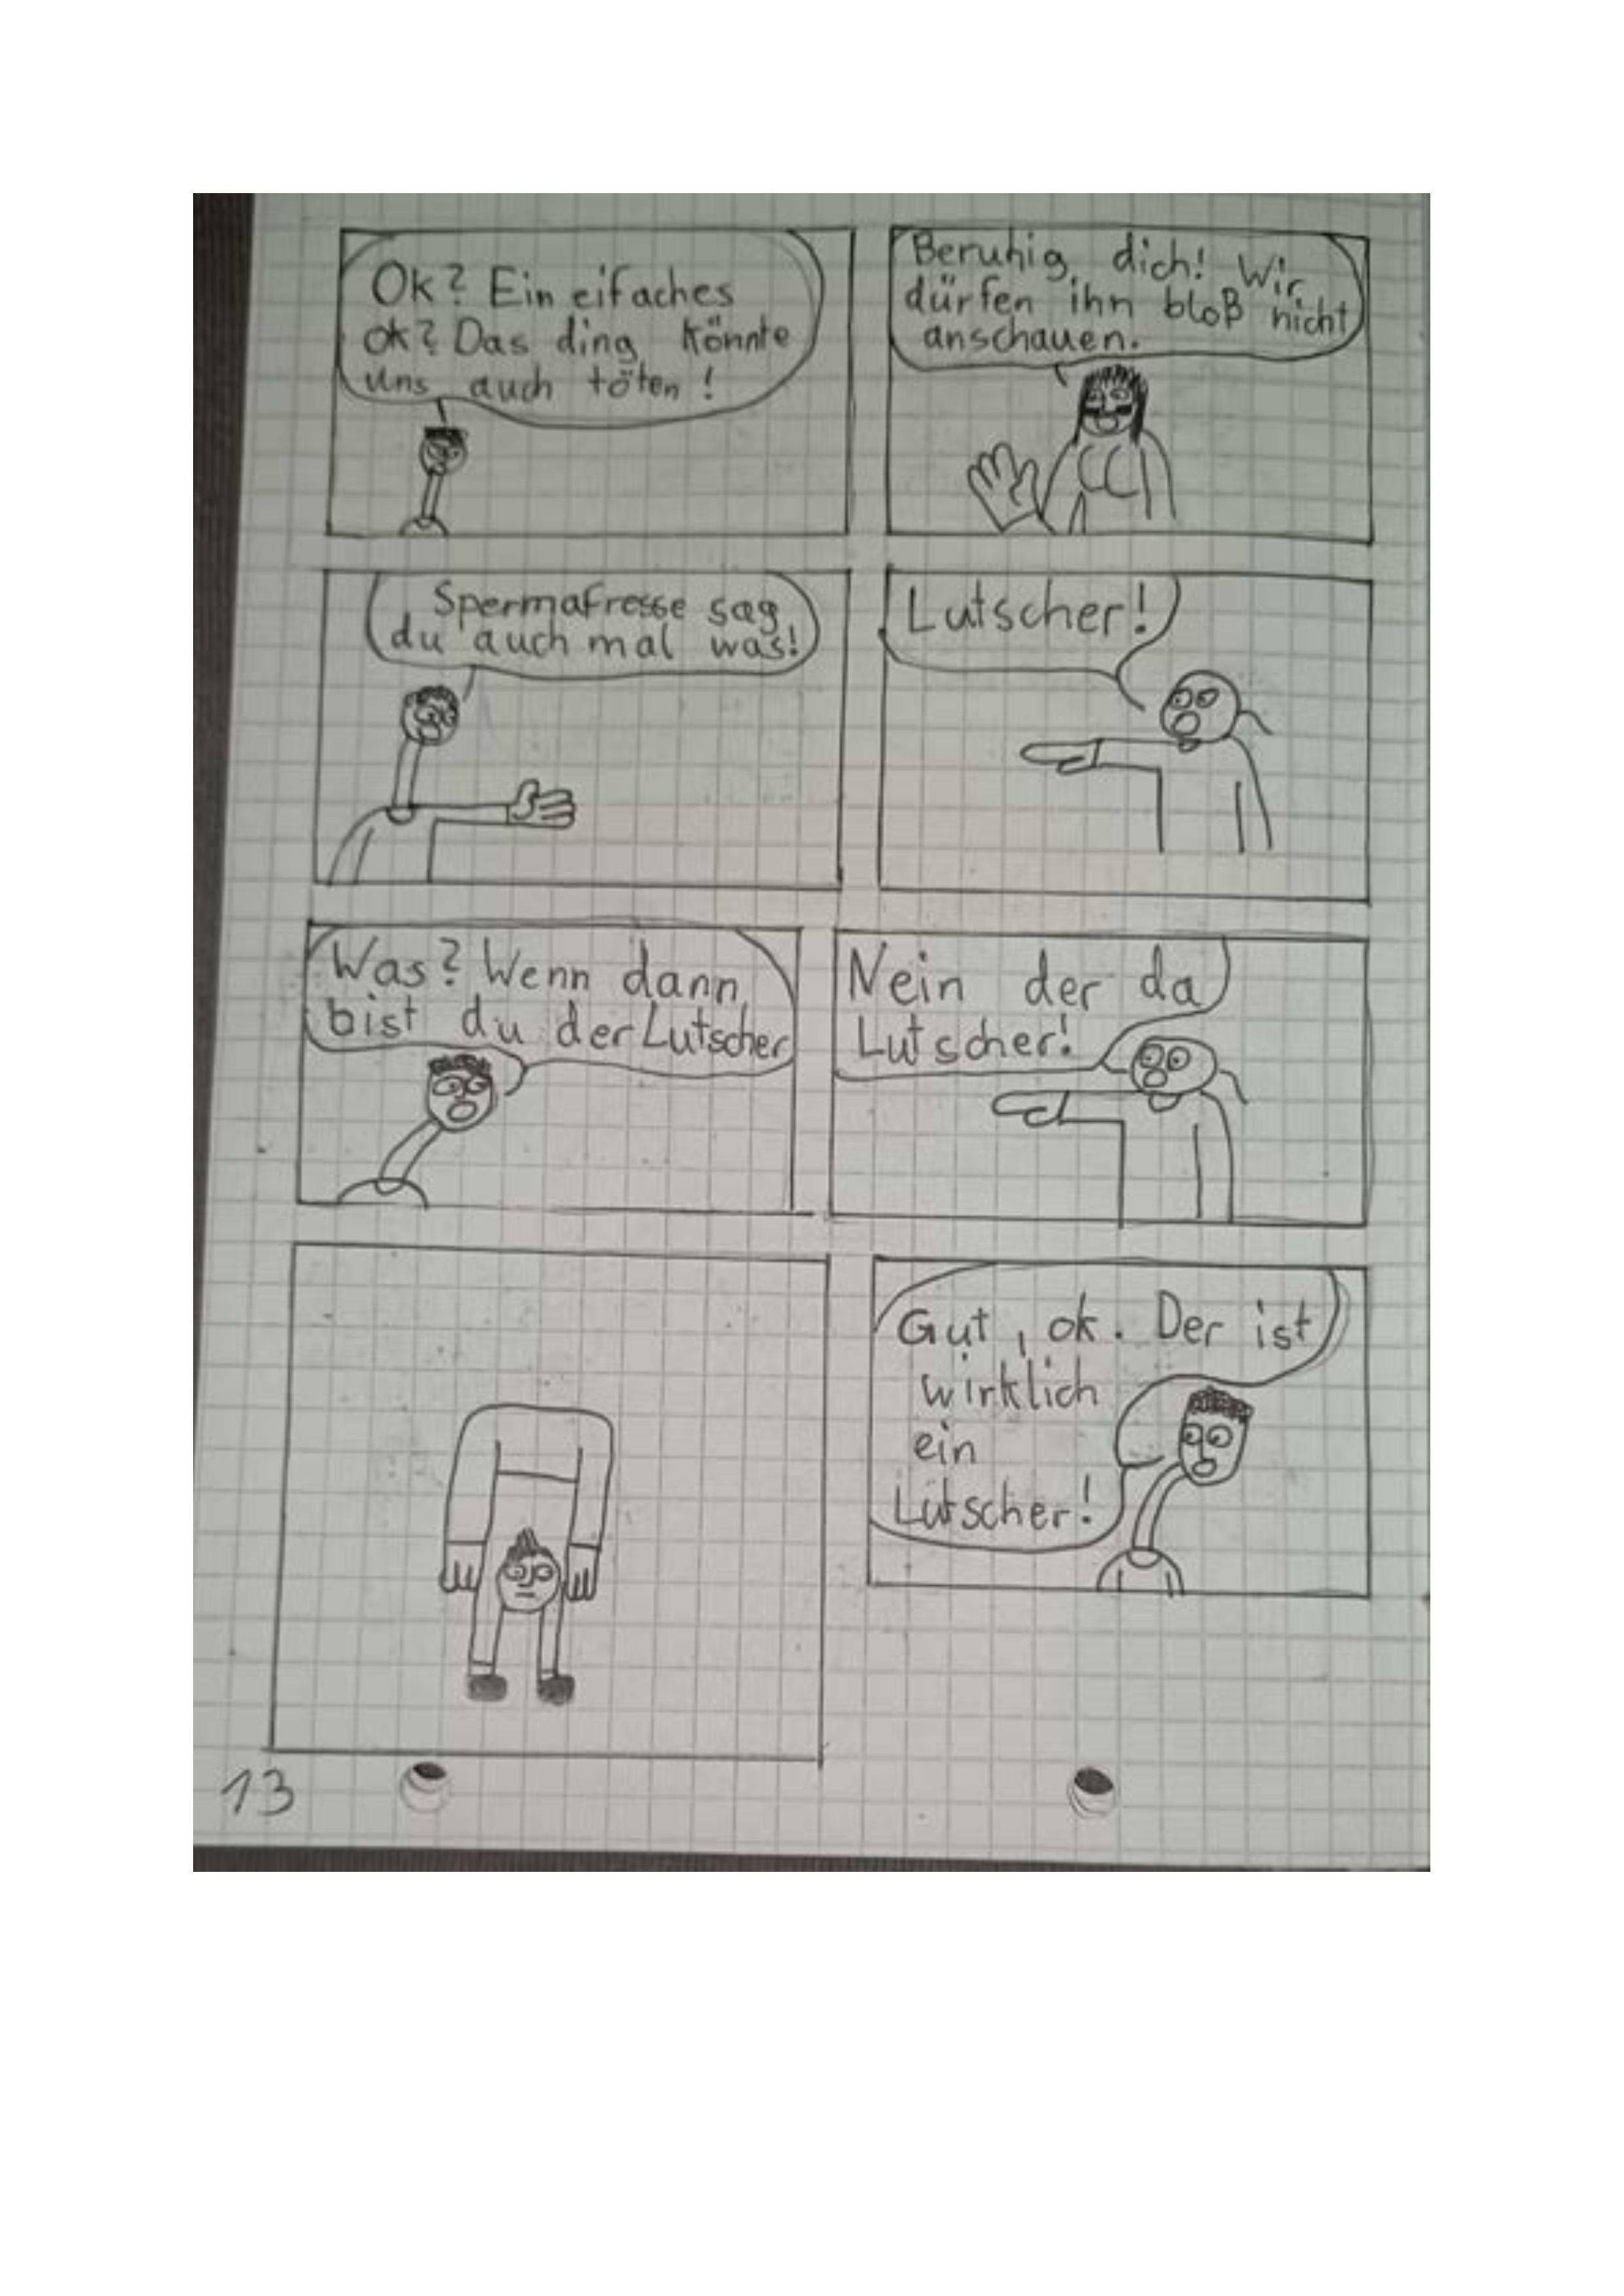 Ok? Ein eifaches
ok? Das ding könnte
uns auch töten!
Beruhig dich! Wir
dürfen ihn bloß nicht
anschauen.
Spermafresse sag
du auch mal was!
Lutscher!
Was? Wenn dann
bist du der Lutscher
Nein der da
Lutscher!
Gut, ok. Der ist
wirklich
ein
Lutscher!
13